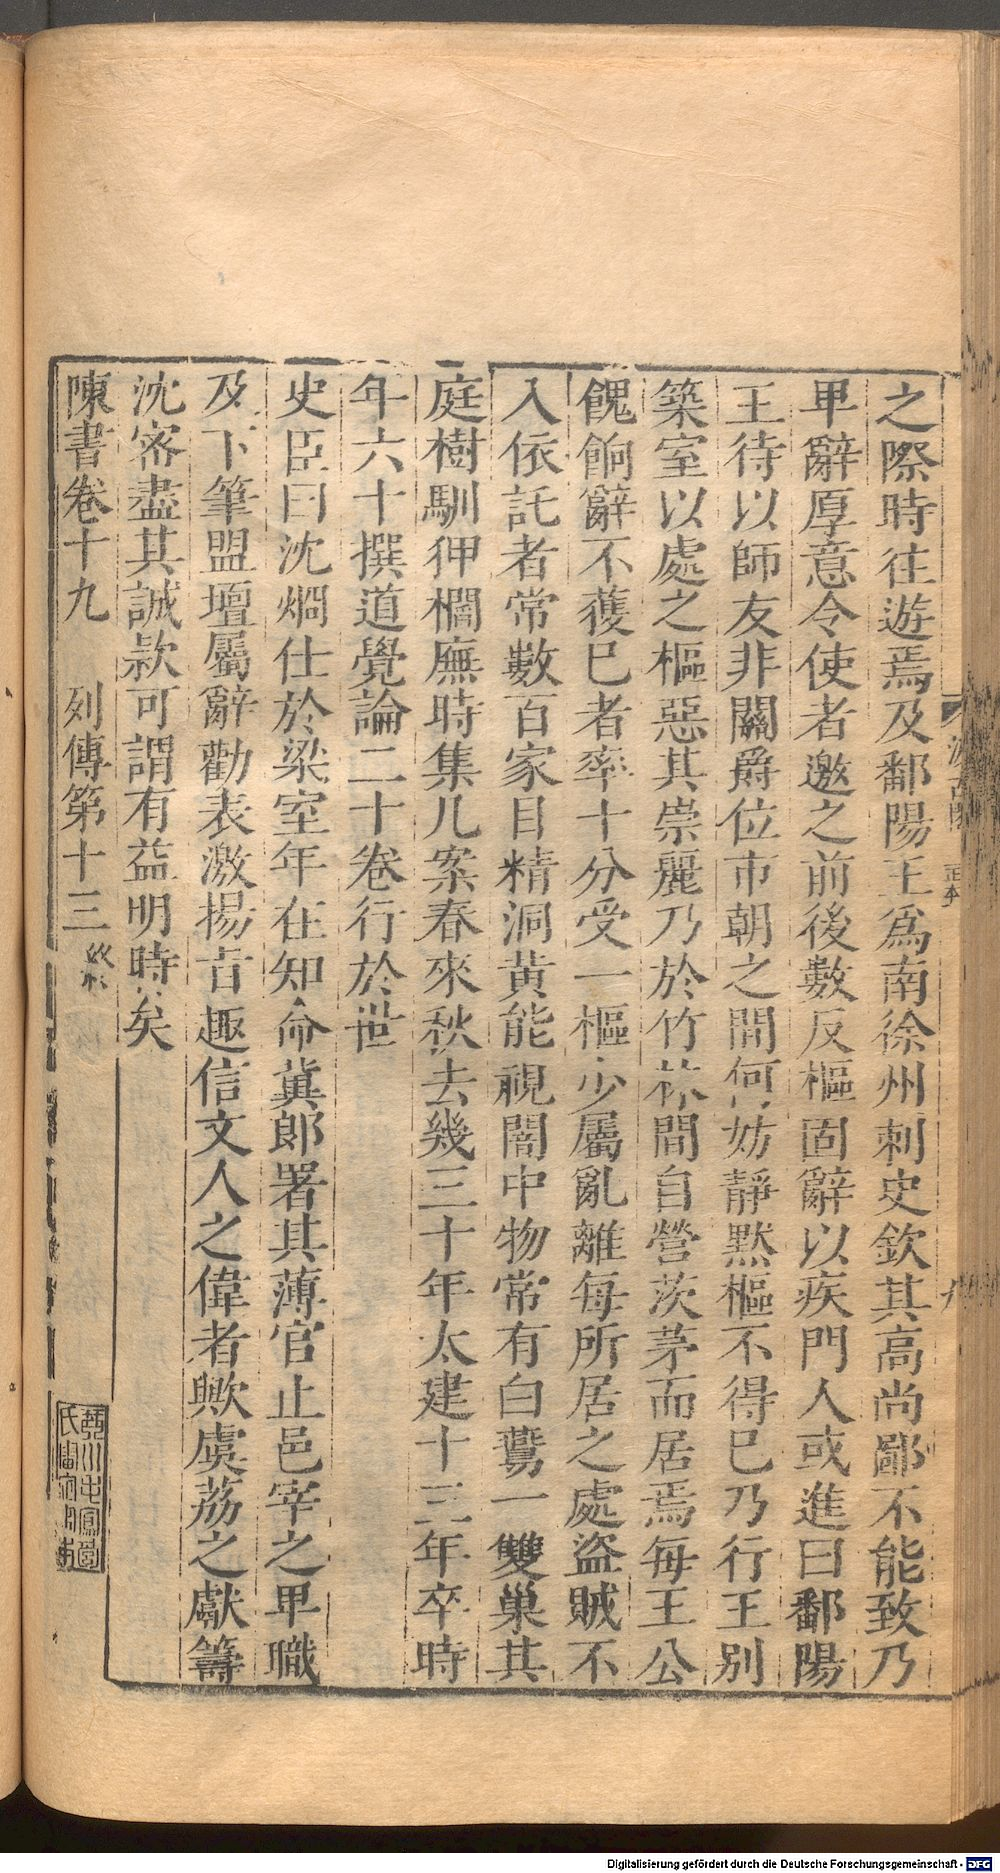 之際時往遊焉及鄱陽王爲南徐州刺史欽其高尚鄙不能致乃
卑辭厚意令使者邀之前後數反樞固辭以疾門人或進曰鄱陽
王待以師友非關爵位市朝之間何妨靜默樞不得已乃行王別
築室以處之樞惡其崇麗乃於竹林間自營茨茅而居焉每王公
餽餉辭不獲已者率十分受一樞少屬亂離每所居之處盜賊不
入依託者常數百家目精洞黃能視闇中物常有白鷰一雙巢其
庭樹馴狎櫚廡時集几案春來秋去幾三十年太建十三年卒時
年六十撰道覺論二十卷行於世
史臣曰沈烱仕於梁室年在知命冀郎署其薄官止邑宰之卑職
及下筆盟壇屬辭勸表激揚旨趣信文人之偉者歟虞荔之獻籌
沈密盡其誠款可謂有益明時矣
陳書卷十九 列傳第十三
汲古閣 正本
Digitalisierung gefördert durch die Deutsche Forschungsgemeinschaft - DFG